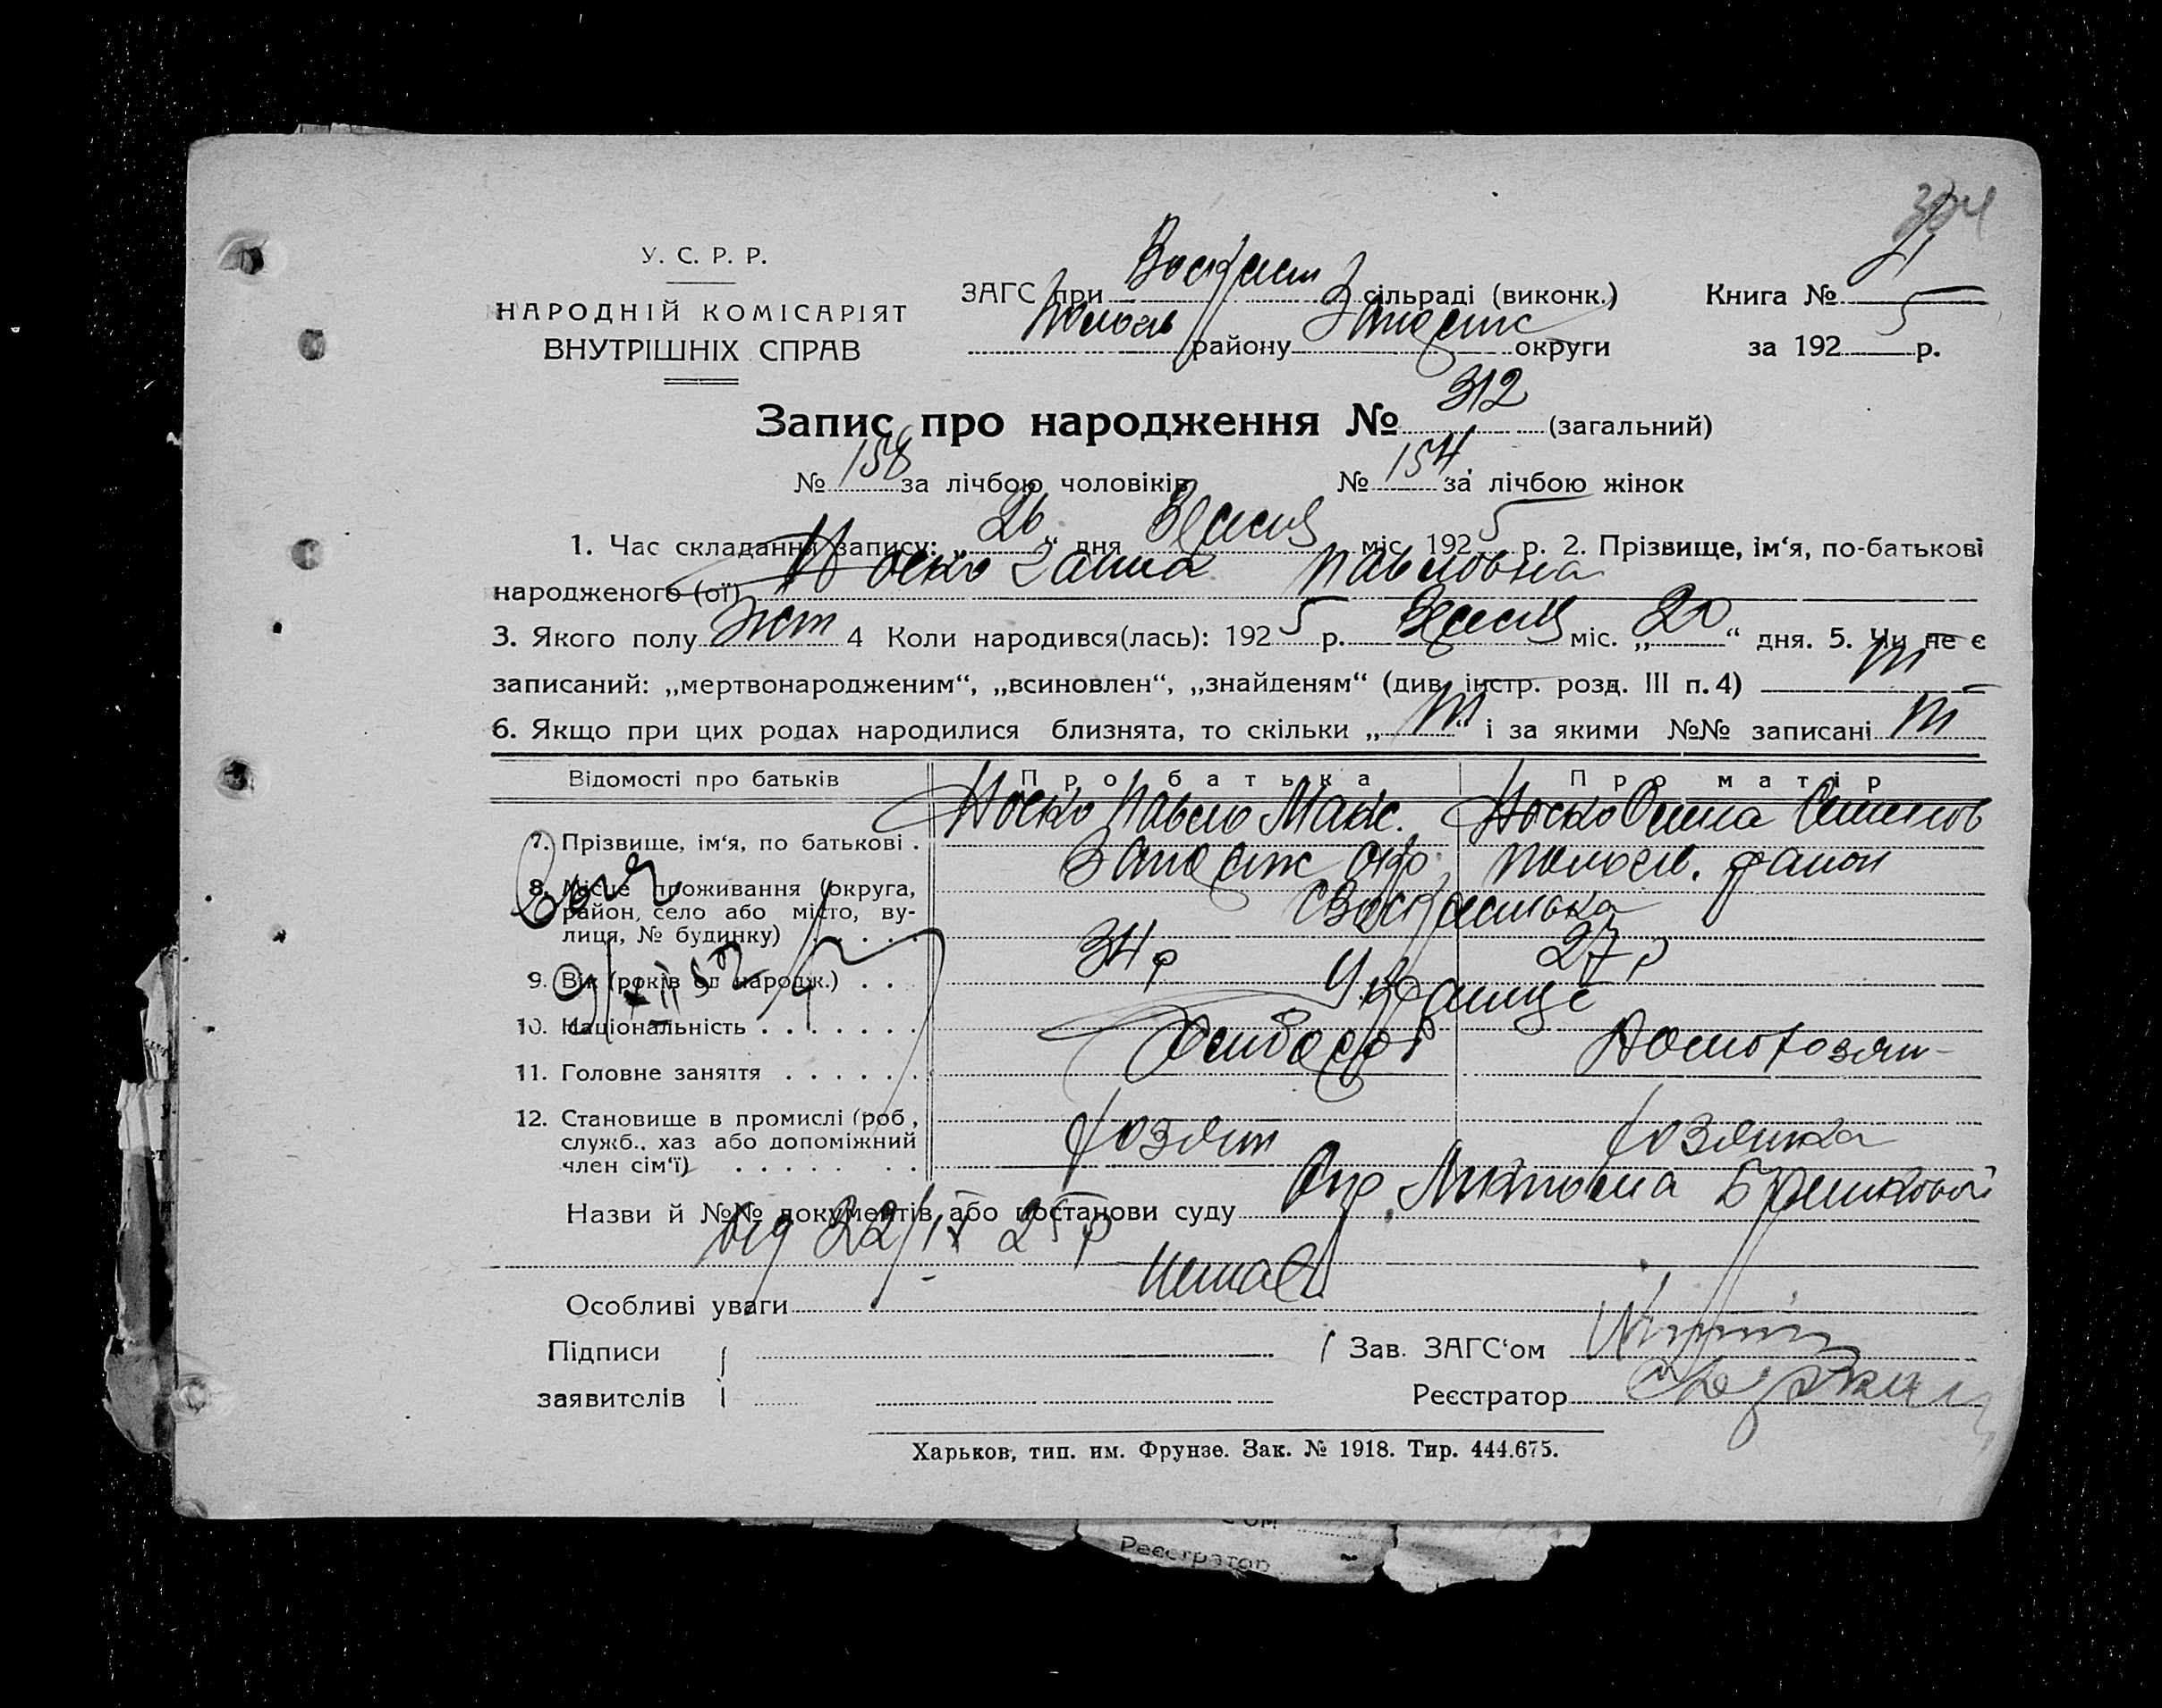 304
У. С. Р. Р.
НАРОДНІЙ КОМІСАРІЯТ
ВНУТРІШНІХ СПРАВ
ЗАГС при Воскресен сільраді (виконк.)
Пологів району Запоріж округи
Книга №
за 1925 р.
Запис про народження № 312 (загальний)
№ 158 за лічбою чоловіків № 154 за лічбою жінок
1. Час складання запису: „26“ дня міс. 1925 р. 2. Прізвище, ім‘я, по-батькові
народженого (ої) Носко Ганна Павловна
3. Якого полу жін 4 Коли народився(лась): 1925 р. міс. „20“ дня. 5. Чи не є
записаний: „мертвонародженим“, „всиновлен“, „знайденям“ (див. інстр. розд. III п. 4)
6. Якщо при цих родах народилися близнята, то скільки „ “ і за якими №№ записані
Відомості про батьків Про батька Про матір
7. Прізвище, ім‘я, по батькові . Носко Павло Макс. Носко
8. Місце проживання (округа, район, село або місто, вулиця, № будинку) Запоріж окр Пологів. район
с Воскресенька
9. Вік (років од народж.) . . . 34 р 27 р
10. Національність . . . . . . . Українці
11. Головне заняття . . . . . . Хлібороб Домохозяй-
12. Становище в промислі (роб., служб., хаз або допоміжний член сім‘ї) хозяїн хозяйка
Назви й №№ документів або постанови суду
від 22/IX 25 р
Особливі уваги Немає
Підписи
заявителів
Зав. ЗАГС‘ом
Реєстратор
Харьков, тип. им. Фрунзе. Зак. № 1918. Тир. 444.675.
Реєстратор